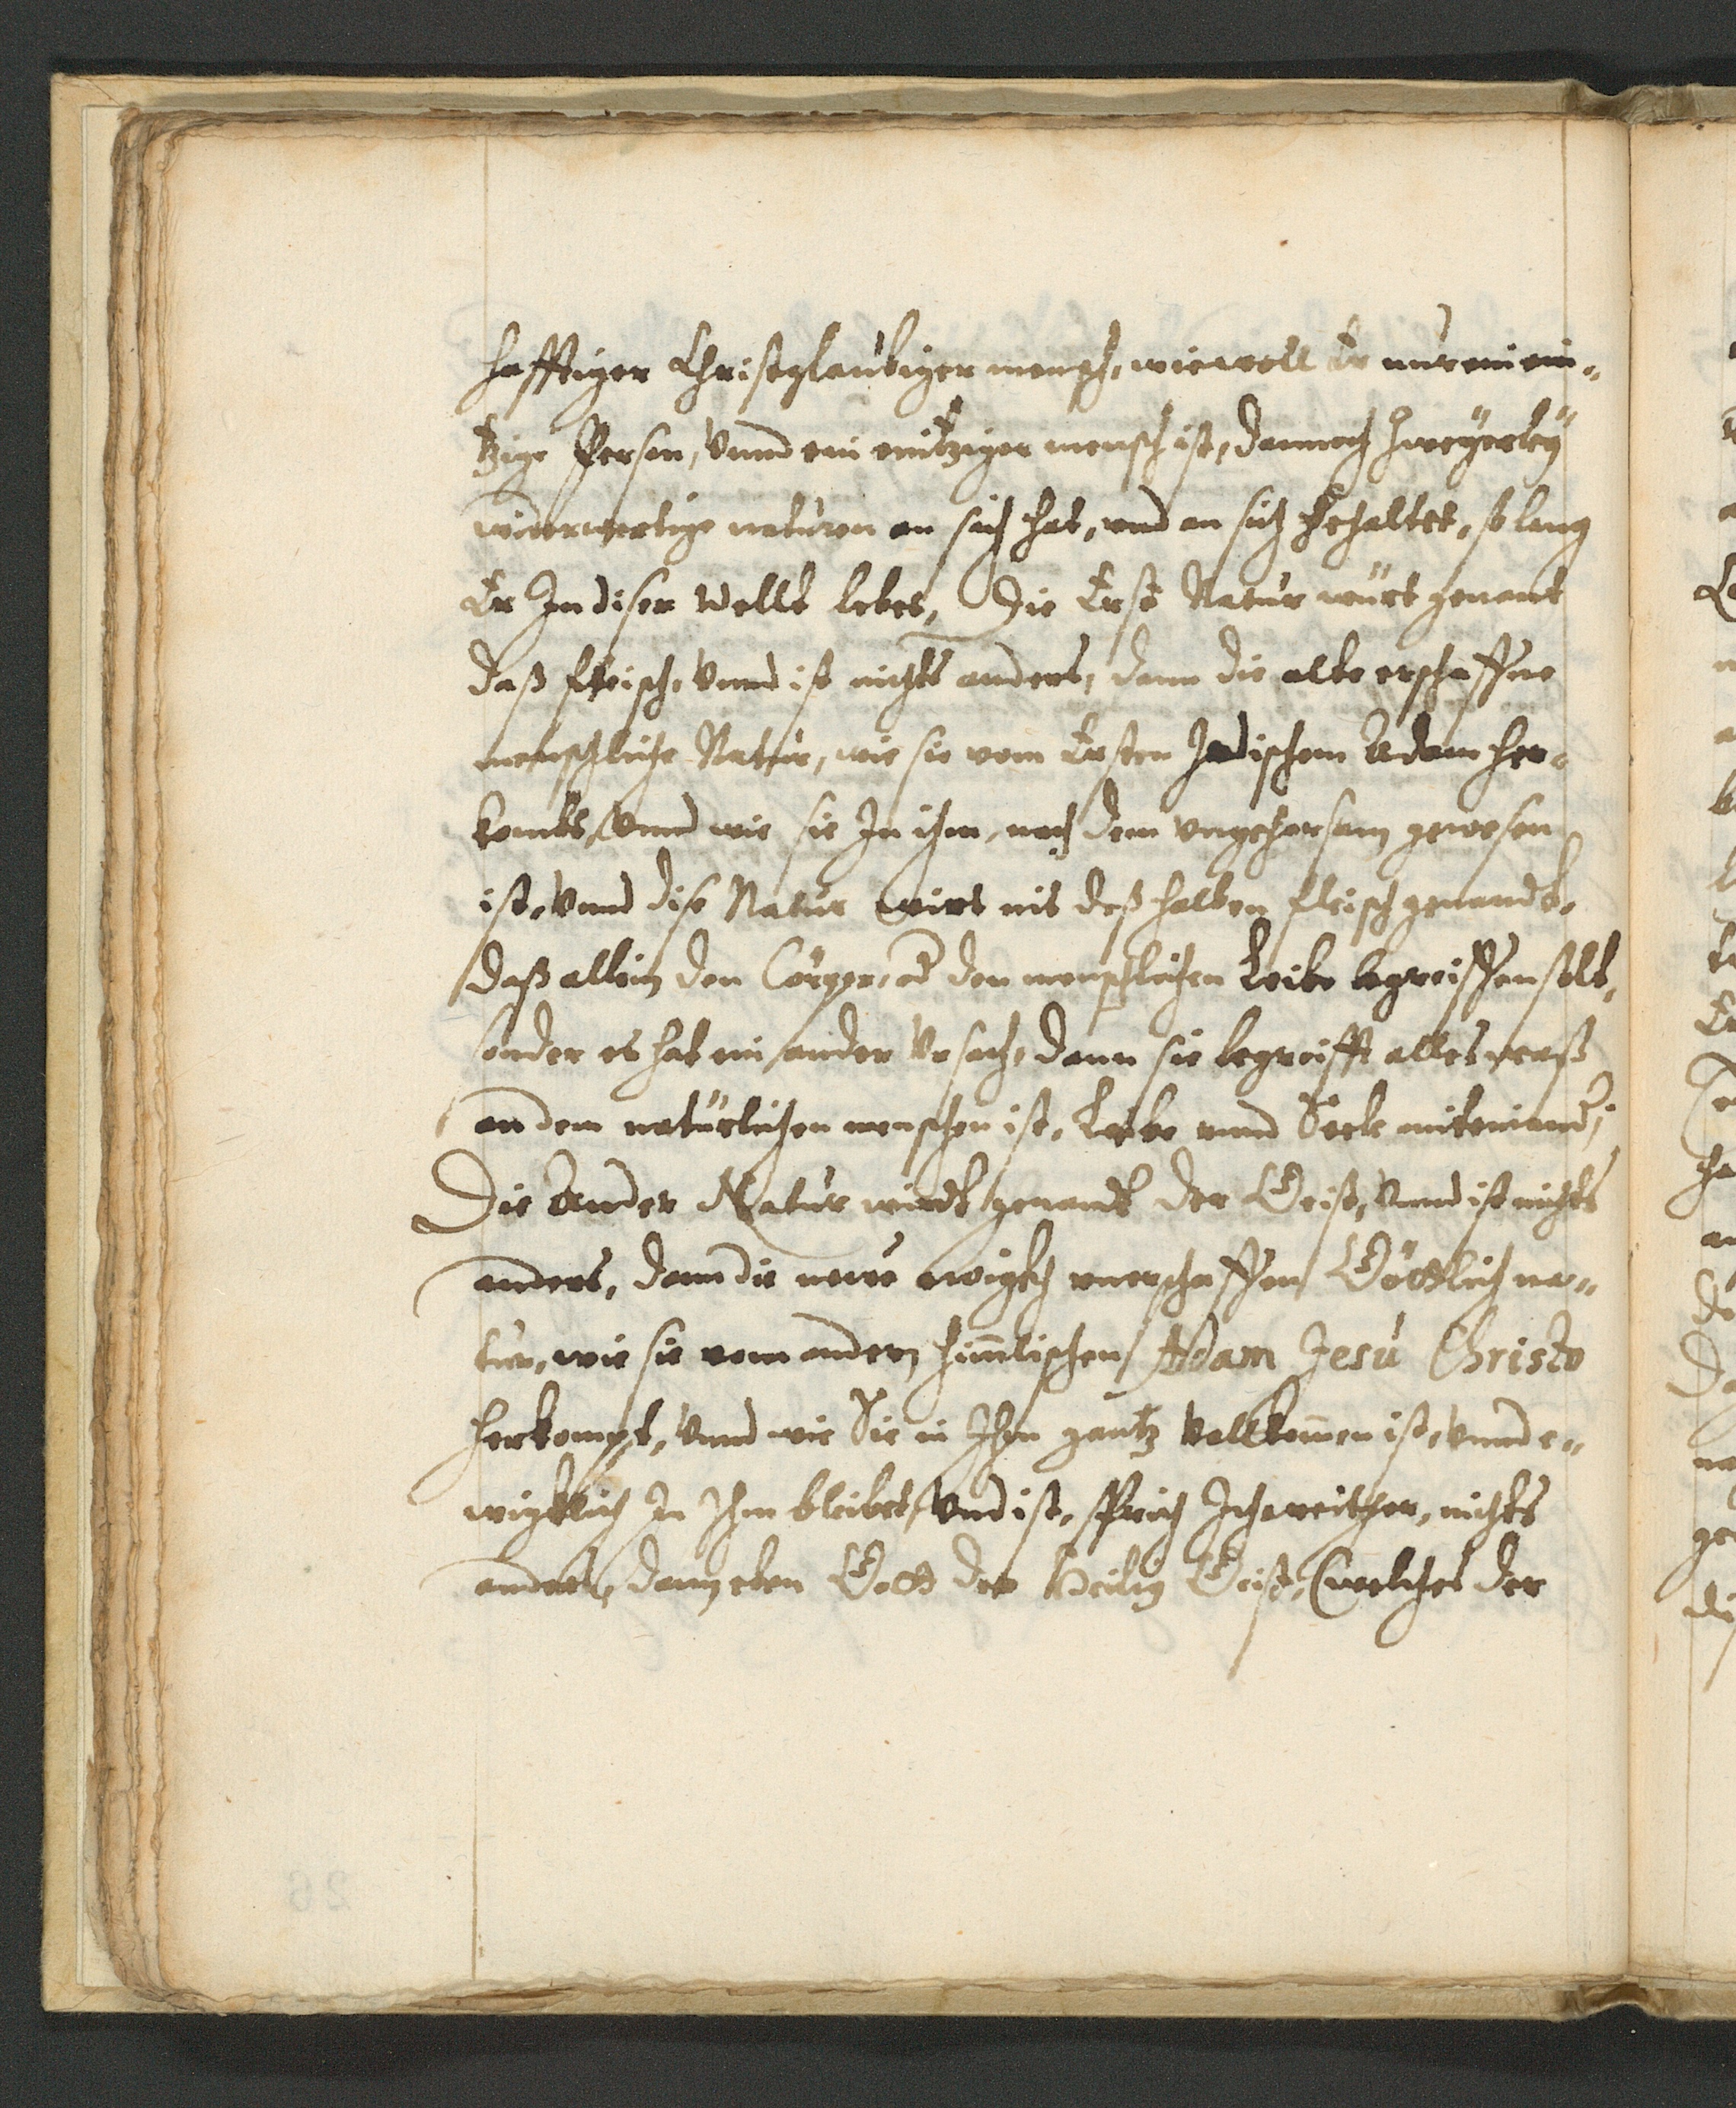 hafftiger Christglaubiger mensch, wiewoll Er nur ein ein-
tzige Person, Vnnd ein einitziger mensch ist, dannoch zweÿerleÿ
widerwertige naturen an sich hat, vnd an sich behaltet, so lang
Er In diser Wellt lebet, Die Erst Natur würt genant
daß fleisch, Vnnd ist nichts anders, dann die alte erschaffne
menschliche Natur, wie sie vom Ersten Irdischem Adam her-
kombt, Vnnd wie sie In ihm, nach dem vngehorsam gewesen
ist, Vnnd dise Natur wirt nit deßhalben fleisch genandt,
daß allein den Cörper, od den menschlichen Leibe begreiffen solt,
sonder es hat ein ander Vrsach, dann sie begreifft alles waß
an dem natürlichen menschen ist, Leibe vnnd Seele miteinand,
Die Ander Natur wirdt genandt der Geist, Vnnd ist nichts
anders, dann die newe ewigkh vnerschaffen Göttlich na-
tur, wie sie vom andern himlischen Adam Jesu Christo
herkompt, Vnnd wie Sie in Ihm gantz Vollkomen ist, Vnnd e-
wigklich In Ihm bleibet, Vnd ist, sprich Ich weither, nichts
anders, dann eben Gott der Heilig Geist, (welches der